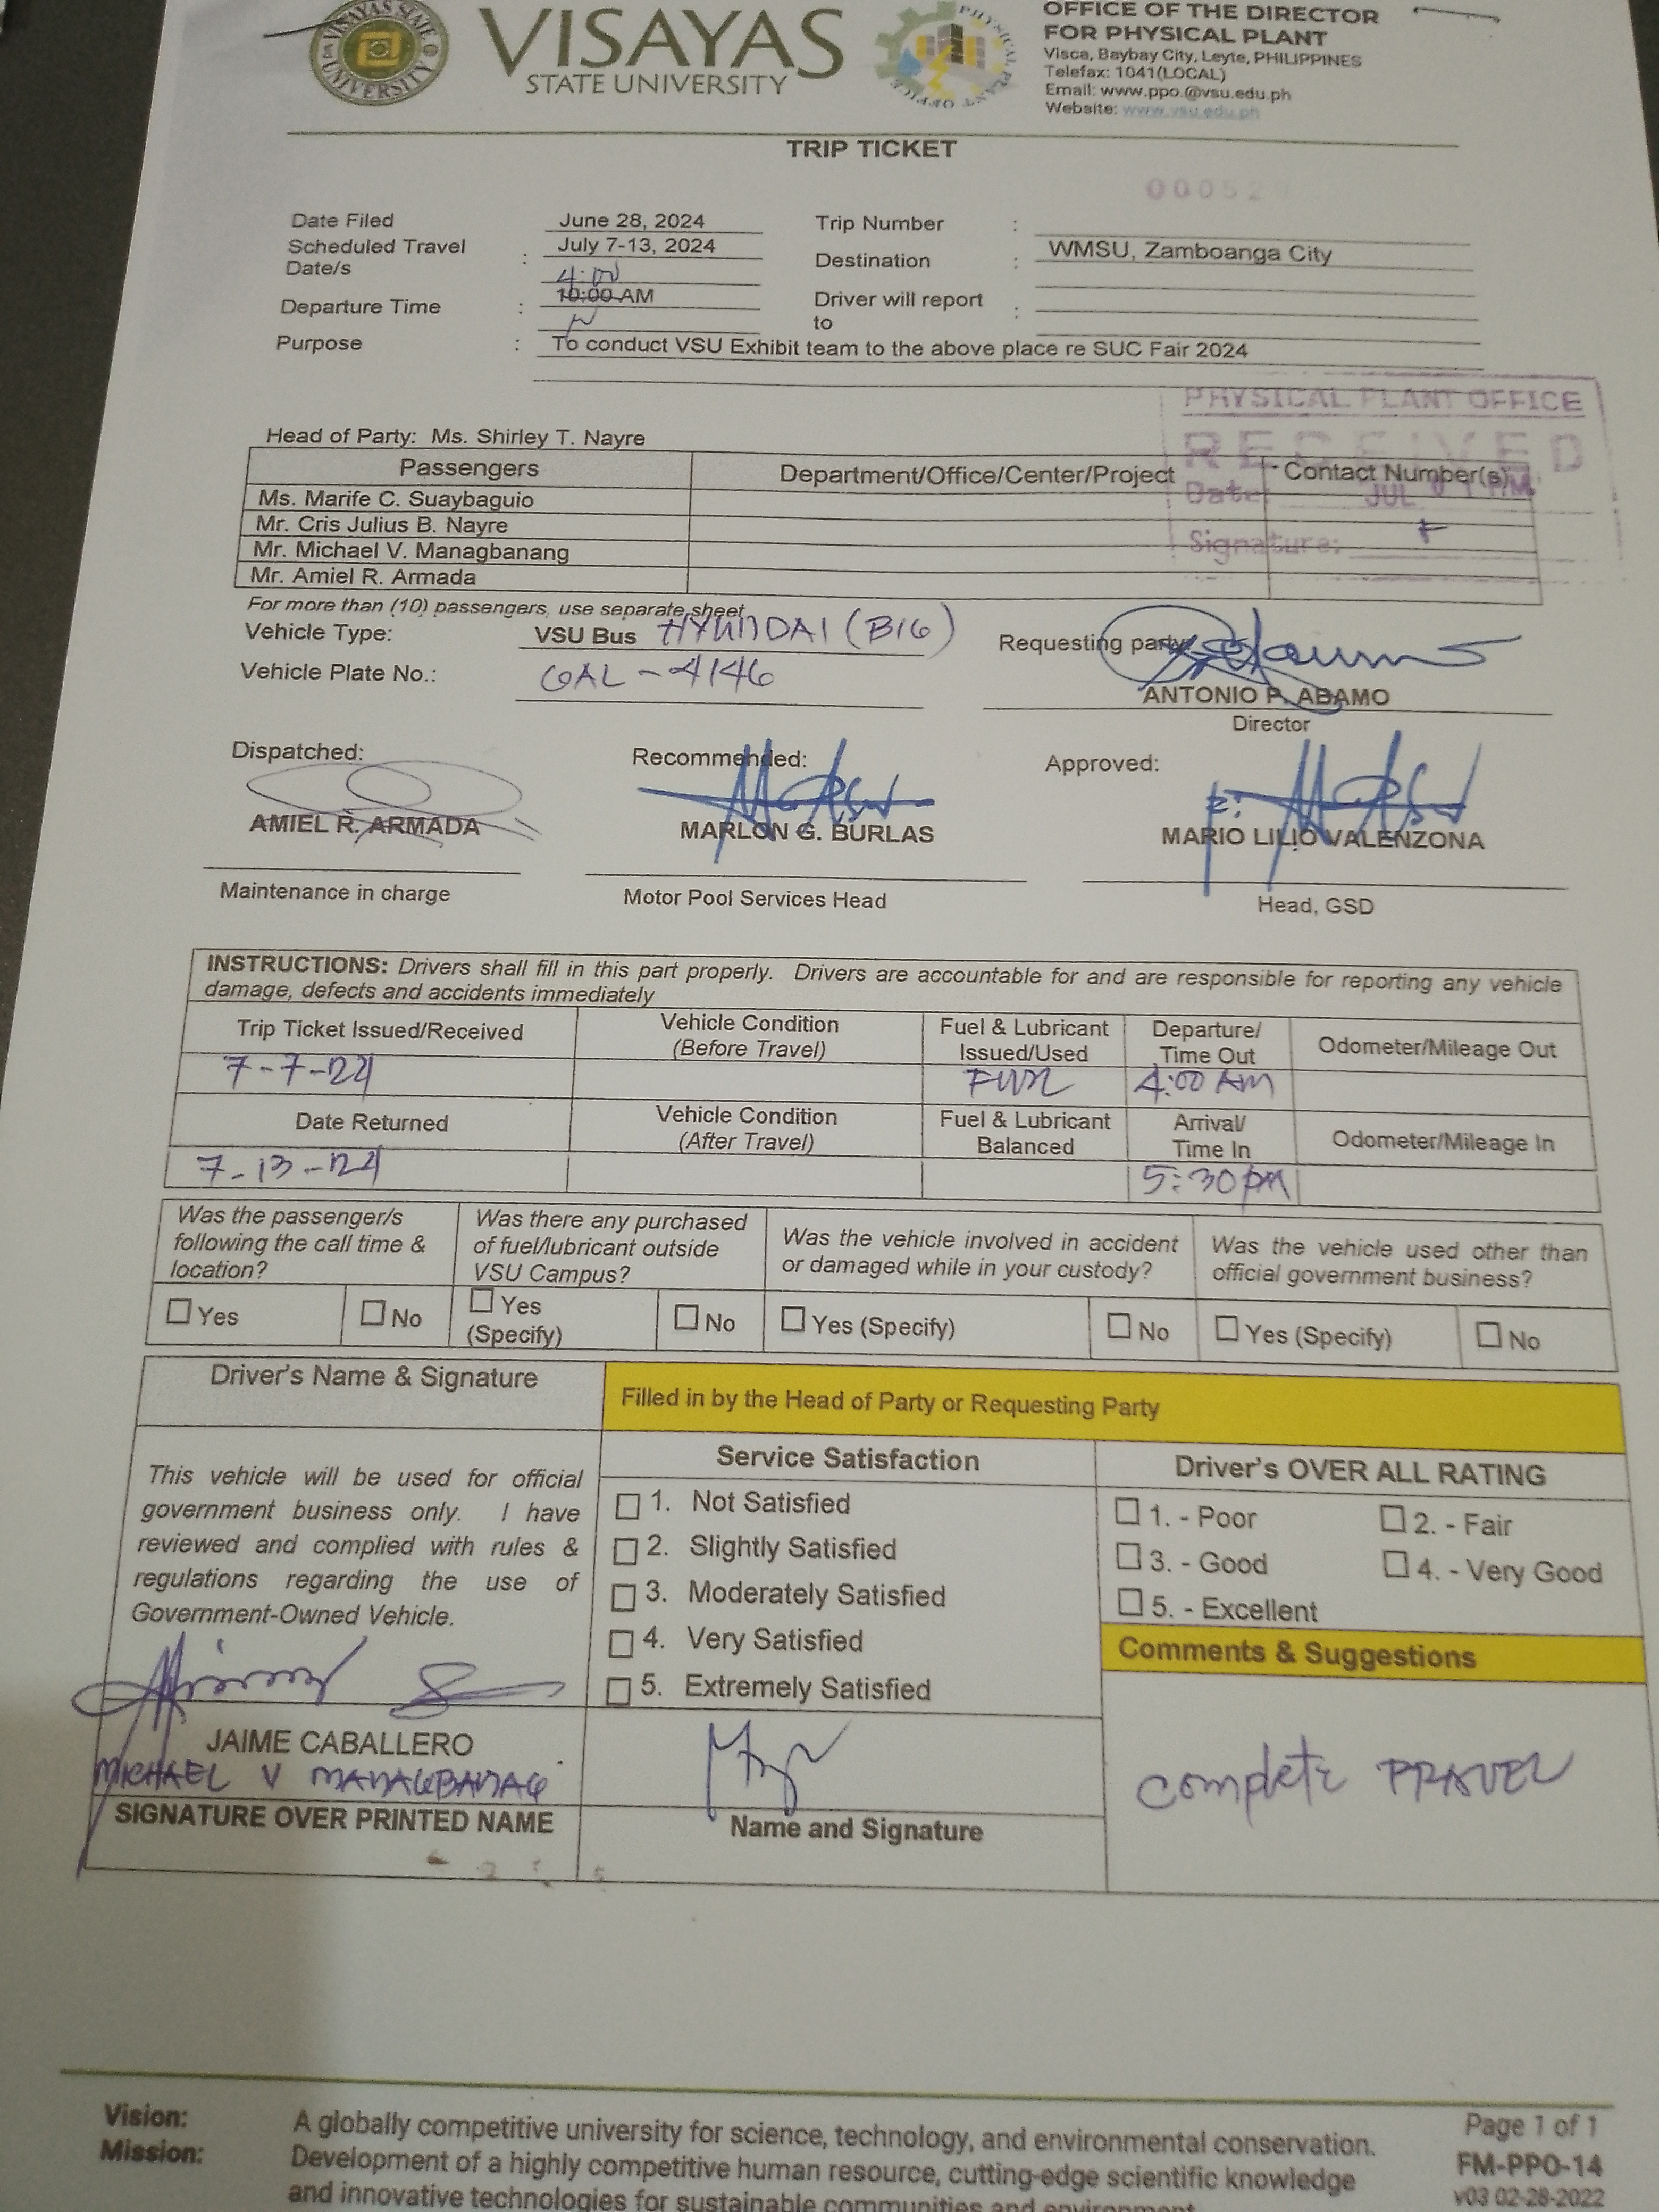 VISAYAS STATE UNIVERSITY
VISAYAS
STATE UNIVERSITY
PHYSICAL PLANT OFFICE
OFFICE OF THE DIRECTOR
FOR PHYSICAL PLANT
Visca, Baybay City, Leyte, PHILIPPINES
Telefax: 1041(LOCAL)
Email: www.ppo.@vsu.edu.ph
Website: www.vsu.edu.ph
TRIP TICKET
00052
Date Filed June 28, 2024 Trip Number :
Scheduled Travel Date/s : July 7-13, 2024 Destination : WMSU, Zamboanga City
4:00
Departure Time : 10:00 AM Driver will report to :
Purpose : To conduct VSU Exhibit team to the above place re SUC Fair 2024
PHYSICAL PLANT OFFICE
RECEIVED
Date: JUL
Signature:
Head of Party: Ms. Shirley T. Nayre
Passengers Department/Office/Center/Project Contact Number(s)
Ms. Marife C. Suaybaguio
Mr. Cris Julius B. Nayre
Mr. Michael V. Managbanang
Mr. Amiel R. Armada
For more than (10) passengers, use separate sheet
Vehicle Type: VSU Bus HYUNDAI (BIG) Requesting party:
Vehicle Plate No.: GAL-4146
ANTONIO P. ABAMO
Director
Dispatched: Recommended: Approved:
AMIEL R. ARMADA MARLON G. BURLAS MARIO LILIO VALENZONA
Maintenance in charge Motor Pool Services Head Head, GSD
INSTRUCTIONS: Drivers shall fill in this part properly. Drivers are accountable for and are responsible for reporting any vehicle
damage, defects and accidents immediately
Trip Ticket Issued/Received Vehicle Condition (Before Travel) Fuel & Lubricant Issued/Used Departure/ Time Out Odometer/Mileage Out
7-7-24 4:00 AM
Date Returned Vehicle Condition (After Travel) Fuel & Lubricant Balanced Arrival/ Time In Odometer/Mileage In
7-13-24 5:30 pm
Was the passenger/s following the call time & location? Was there any purchased of fuel/lubricant outside VSU Campus? Was the vehicle involved in accident or damaged while in your custody? Was the vehicle used other than official government business?
Yes No Yes (Specify) No Yes (Specify) No Yes (Specify) No
Driver's Name & Signature Filled in by the Head of Party or Requesting Party
Service Satisfaction Driver's OVER ALL RATING
This vehicle will be used for official
government business only. I have
reviewed and complied with rules &
regulations regarding the use of
Government-Owned Vehicle.
1. Not Satisfied
2. Slightly Satisfied
3. Moderately Satisfied
4. Very Satisfied
5. Extremely Satisfied
1. - Poor 2. - Fair
3. - Good 4. - Very Good
5. - Excellent
Comments & Suggestions
JAIME CABALLERO
MICHAEL V MANAGBANAG
SIGNATURE OVER PRINTED NAME
Name and Signature
complete TRAVEL
Vision: A globally competitive university for science, technology, and environmental conservation.
Mission: Development of a highly competitive human resource, cutting-edge scientific knowledge
and innovative technologies for sustainable communities and environment.
Page 1 of 1
FM-PPO-14
v03 02-28-2022